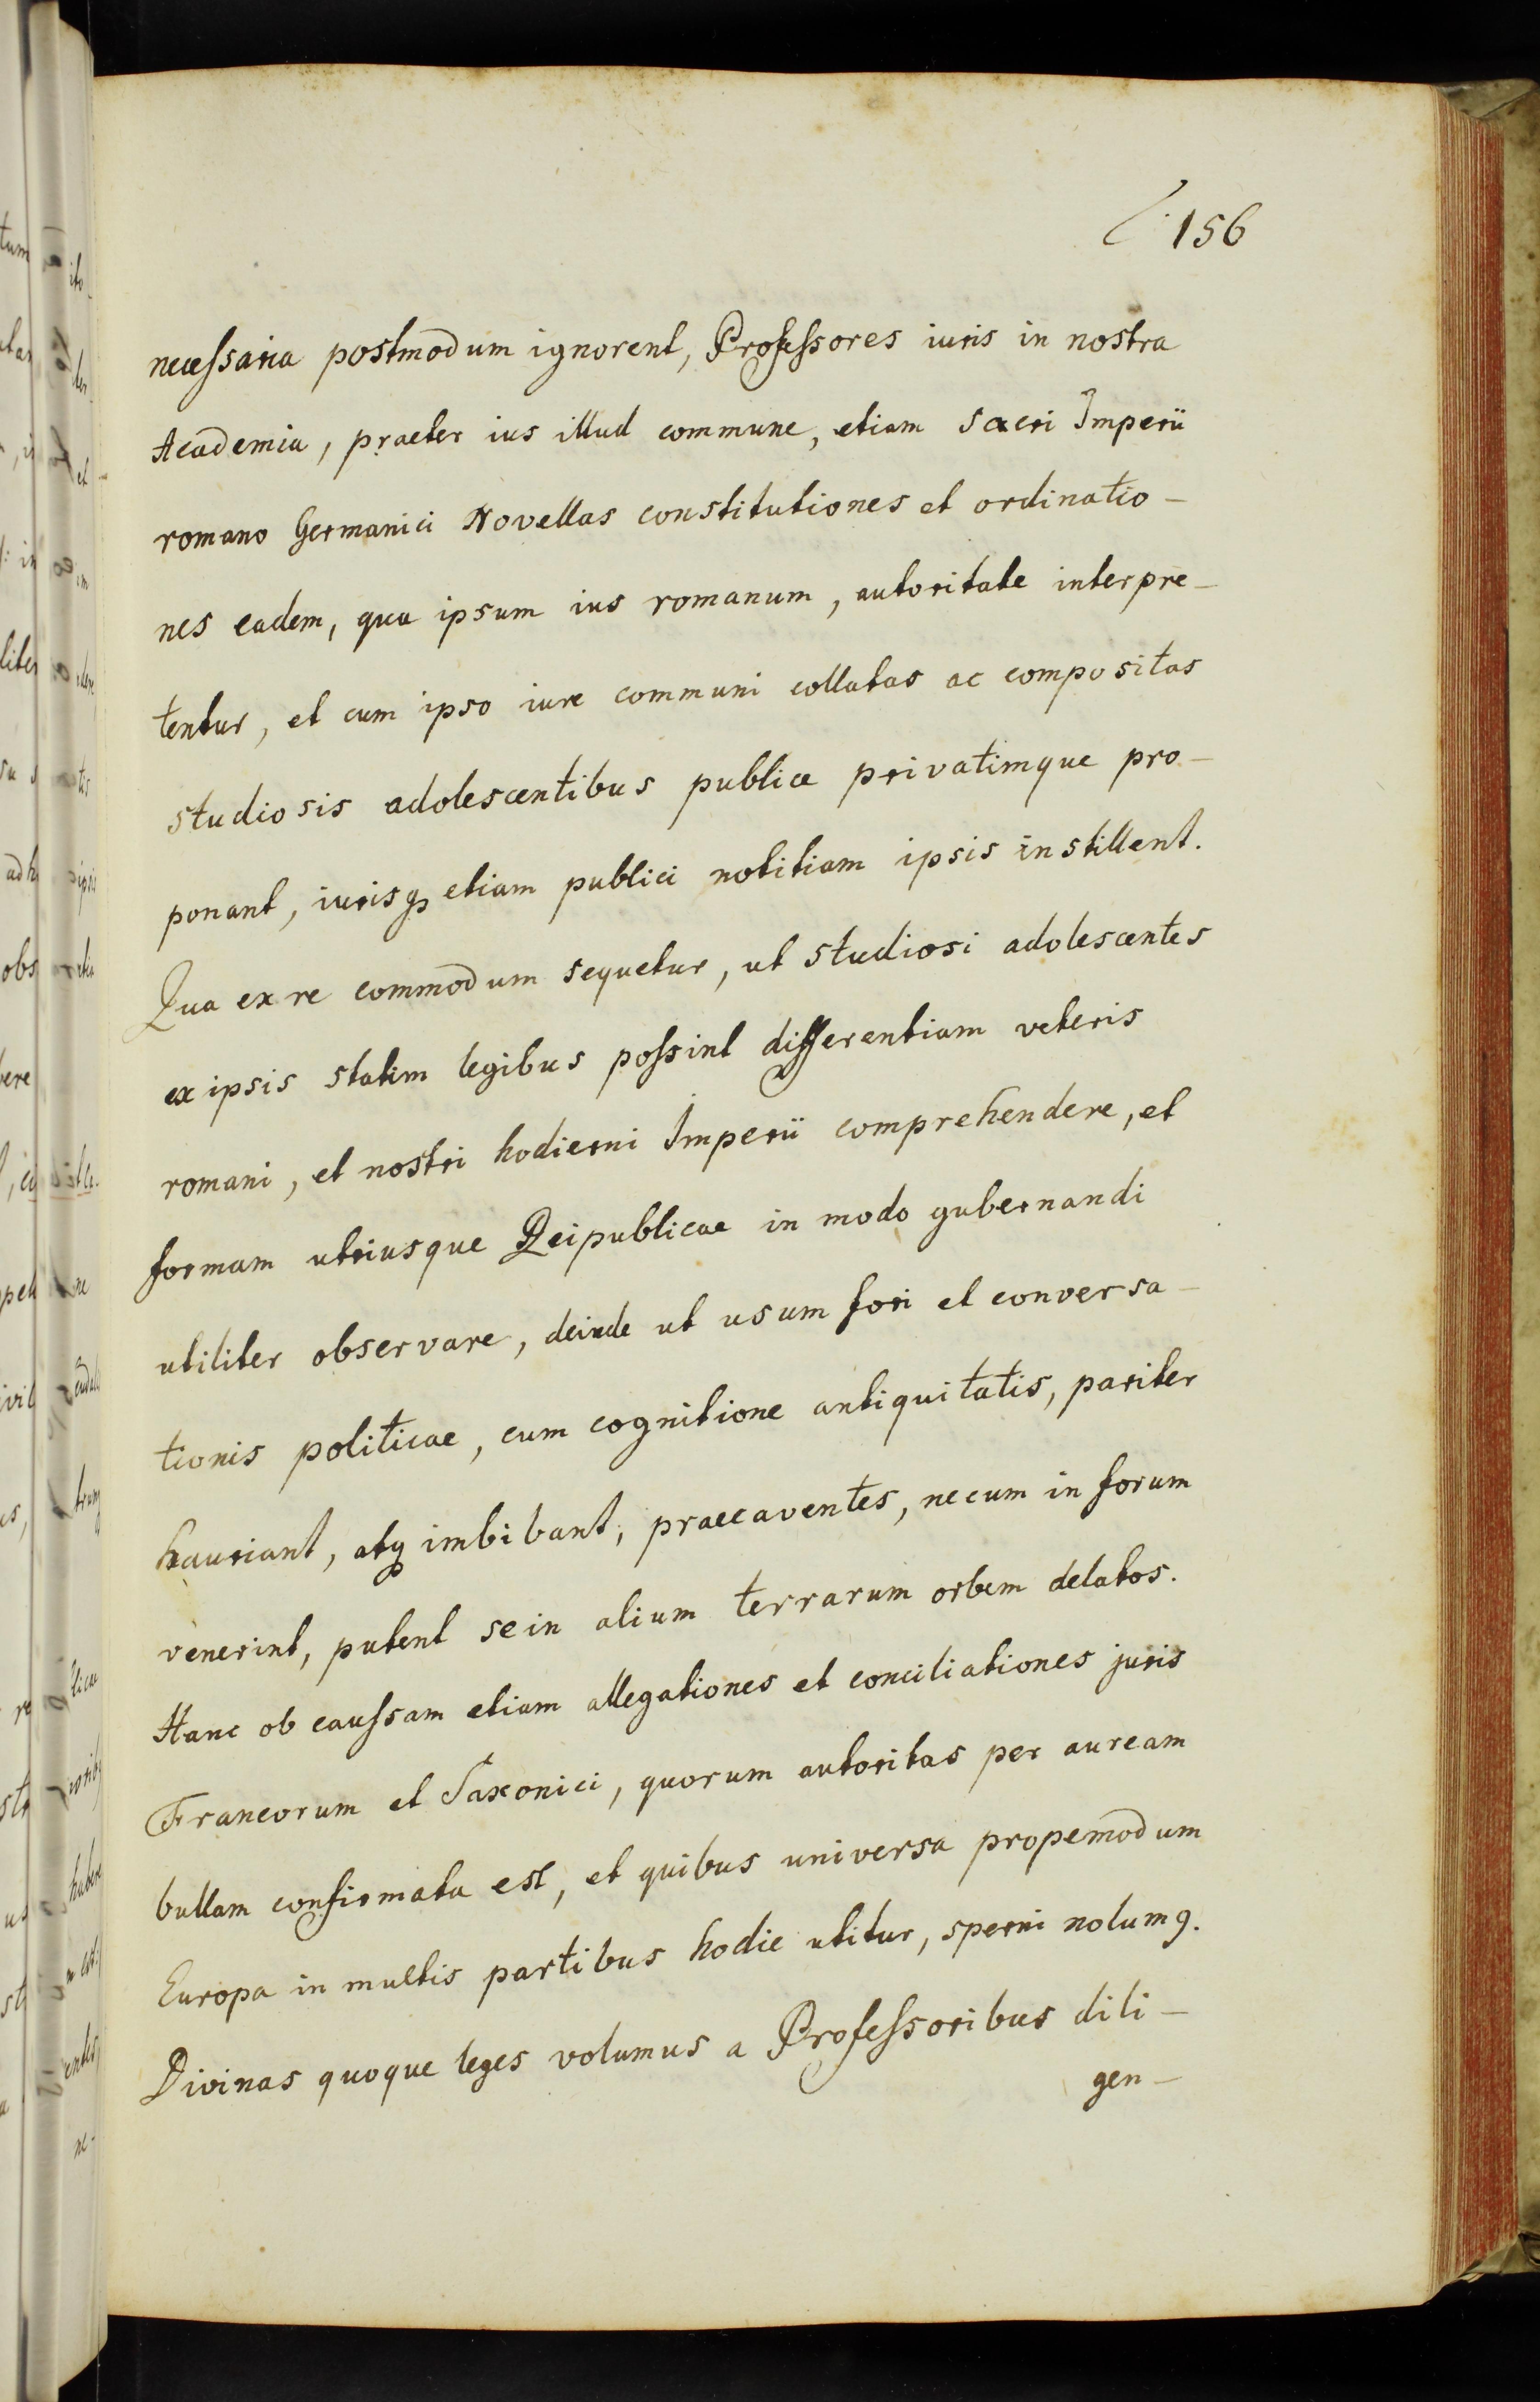 156
necessaria postmodum ignorent, Professores iuris in nostra
Academia, praeter ius illud commune, etiam Sacri Imperii
romano Germanici Novellas constitutiones et ordinatio-
nes eadem, qua ipsum ius romanum, autoritate interpre-
tentur, et cum ipso iure communi collatas ac compositas
studiosis adolescentibus publice privatimque pro-
ponant, iurisq; etiam publici notitiam ipsis instillent.
Qua ex re commodum sequetur, ut studiosi adolescentes
ex ipsis statim legibus possint differentiam veteris
romani, et nostri hodierni Imperii comprehendere, et
formam utriusque Reipublicae in modo gubernandi
utiliter observare, deinde ut usum fori et conversa-
tionis politicae, cum cognitione antiquitatis, pariter
hauriant, atq; imbibant, praecaventes, ne cum in forum
venerint, putent se in alium terrarum orbem delatos.
Hanc ob caussam etiam allegationes et conciliationes juris
Francorum et Saxonici, quorum autoritas per auream
bullam confirmata est, et quibus universa propemodum
Europa in multis partibus hodie utitur, sperni nolumꝰ.
Divinas quoque leges volumus a Professoribus dili-
gen-